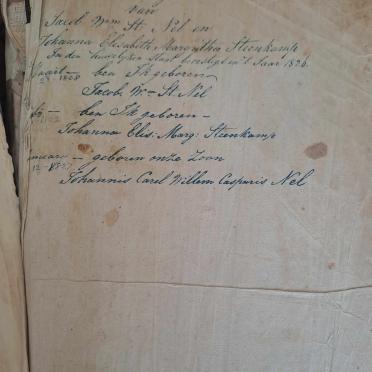 van
Jacob Wm St. Nel en
Johanna Elisabeth Margritha Steenkamp
In den huwelyken staat bevestigd in't Jaar 1826.
ben Ik geboren
Jacob Wm St Nel
ben Ik geboren —
Johanna Elis: Marg: Steenkamp
maart — geboren onze Zoon
12 - 1827
Johannis Carel Willem Casparis Nel